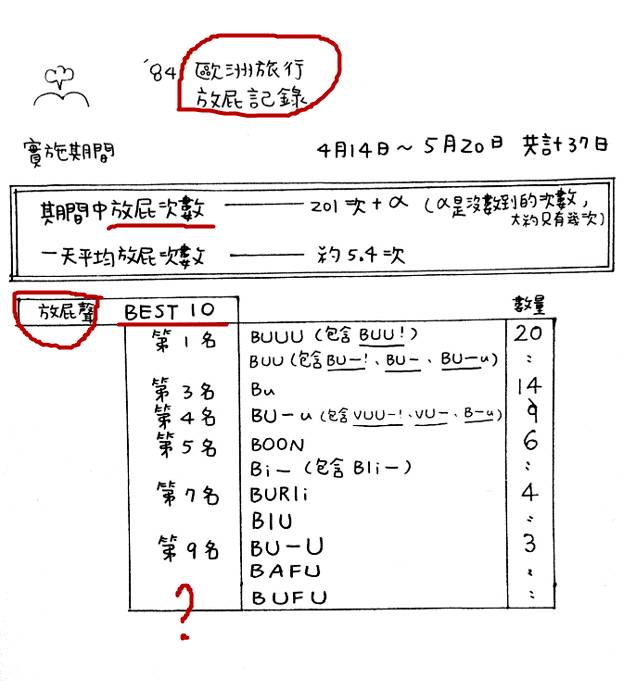 '84 歐洲旅行
放屁記錄
實施期間 4月14日～5月20日 共計37日
期間中放屁次數 —— 201次+α (α是沒數到的次數,
大約只有幾次)
一天平均放屁次數 —— 約5.4次
放屁聲 BEST 10 數量
第1名 BUUU (包含BUU!) 20
BUU (包含BU－!、BU－、BU－u) :
第3名 Bu 14
第4名 BU－u (包含VUU－!、VU－、B－u) 9
第5名 BOON 6
Bi－ (包含Bli－) :
第7名 BURli 4
BIU :
第9名 BU－U 3
BAFU :
? BUFU :